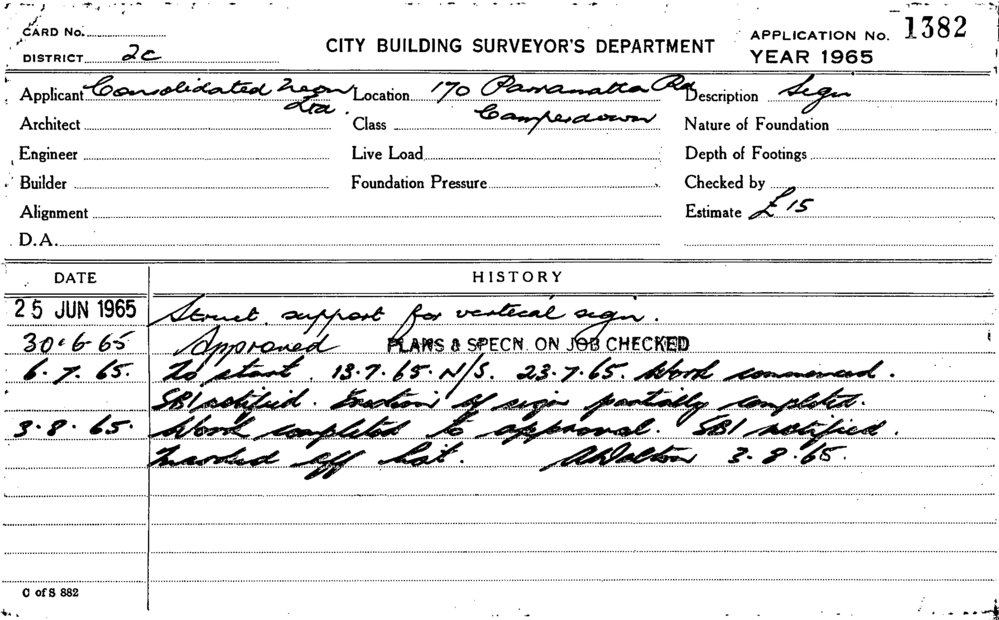 CARD No.
CITY BUILDING SURVEYOR'S DEPARTMENT
APPLICATION No. 1382
DISTRICT 2C
YEAR 1965
Applicant Consolidated Neon Ltd.
Location 170 Parramatta Rd Camperdown
Description Sign
Architect
Class
Nature of Foundation
Engineer
Live Load
Depth of Footings
Builder
Foundation Pressure
Checked by
Alignment
Estimate £15
D.A.
DATE
HISTORY
25 JUN 1965 Struct. support for vertical sign.
30.6.65 Approved PLANS & SPECN. ON JOB CHECKED
6.7.65. To start. 13.7.65. N/S. 23.7.65. Work commenced.
SBI notified. Erection of sign partially completed.
3.8.65. Work completed to approval. SBI notified.
Marked off list. 3.8.65.
C of S 882